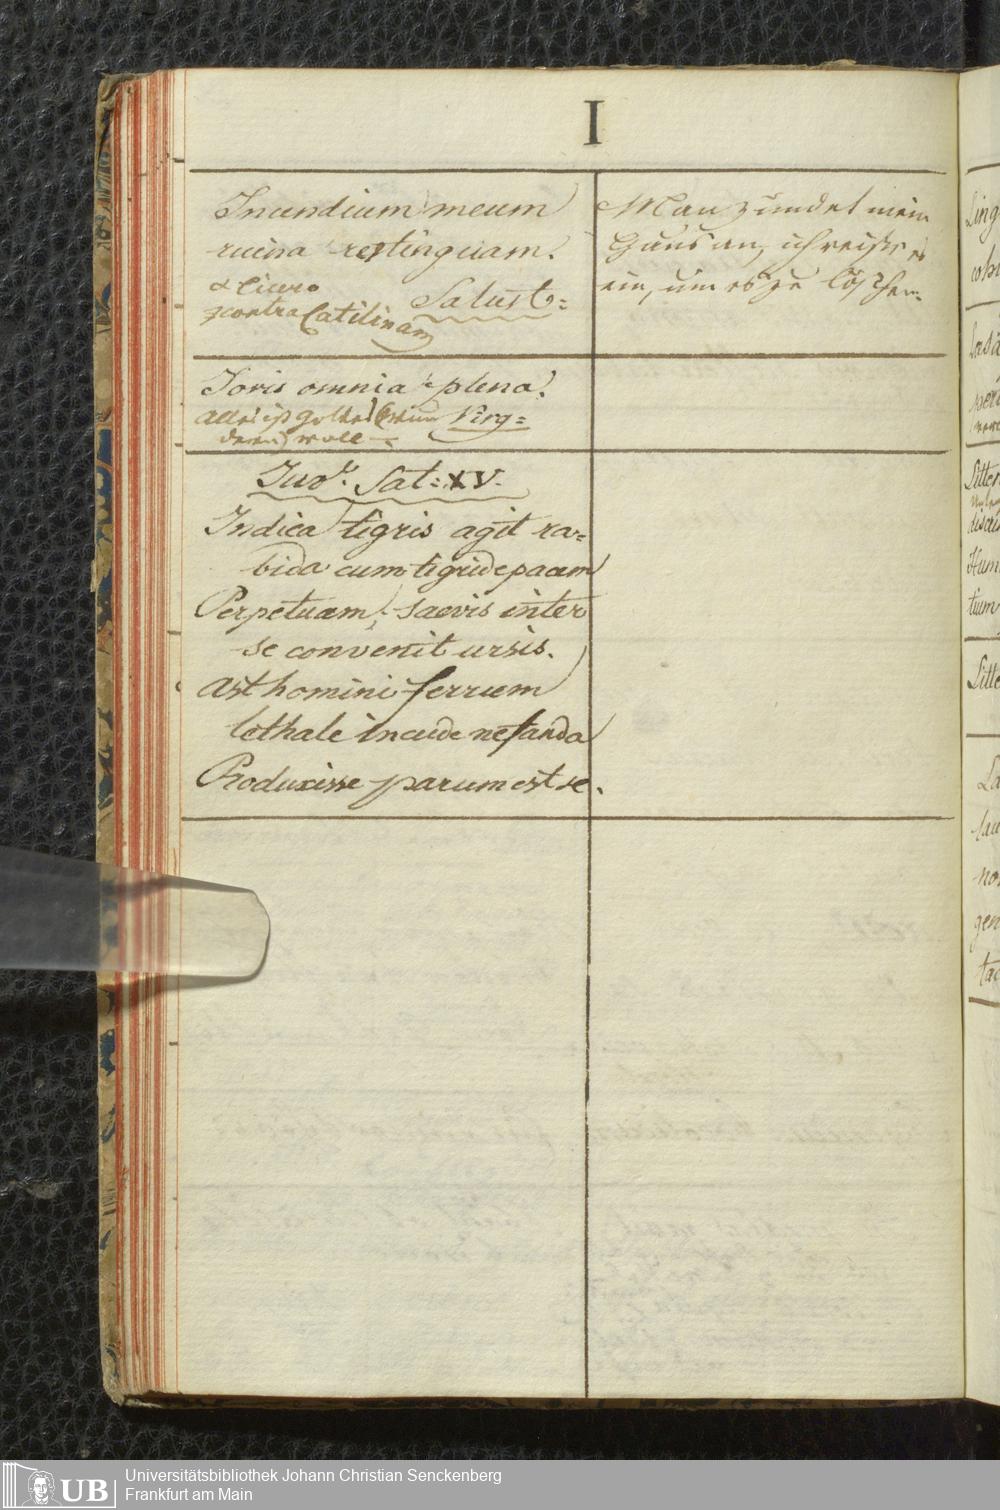 I
Incendium meum
ruina restinguam.
Salust:
& Cicero
contra Catilinam
Man zündet mein
Haus an, ich reiße es
ein, um es zu löschen.
Jovis omnia plena.
Virg:
Alles ist Gottes
voll
Juv: Sat: XV.
Indica tigris agit ra=
bida cum tigride pacem
Perpetuam, saevis inter
se convenit ursis.
Ast homini ferrum
lethale incude nefanda
Produxisse parum est se.
Ling
Litter
Hum
tium
Litte
La
gen
UB
Universitätsbibliothek Johann Christian Senckenberg
Frankfurt am Main